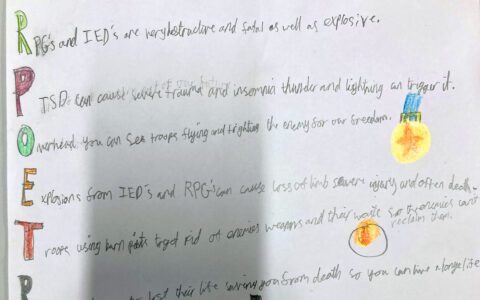 RPG's and IED's are very destructive and fatal as well as explosive.
PTSD can cause severe trauma and insomnia thunder and lightning can trigger it.
Overhead you can see troops flying and fighting the enemy for our freedom.
Explosions from IED's and RPG's can cause loss of limb severe injury and often death.
Troops using burn pits to get rid of enemies weapons and their waste so the enemies can't
reclaim them.
R their life saving you from death so you can live a long life